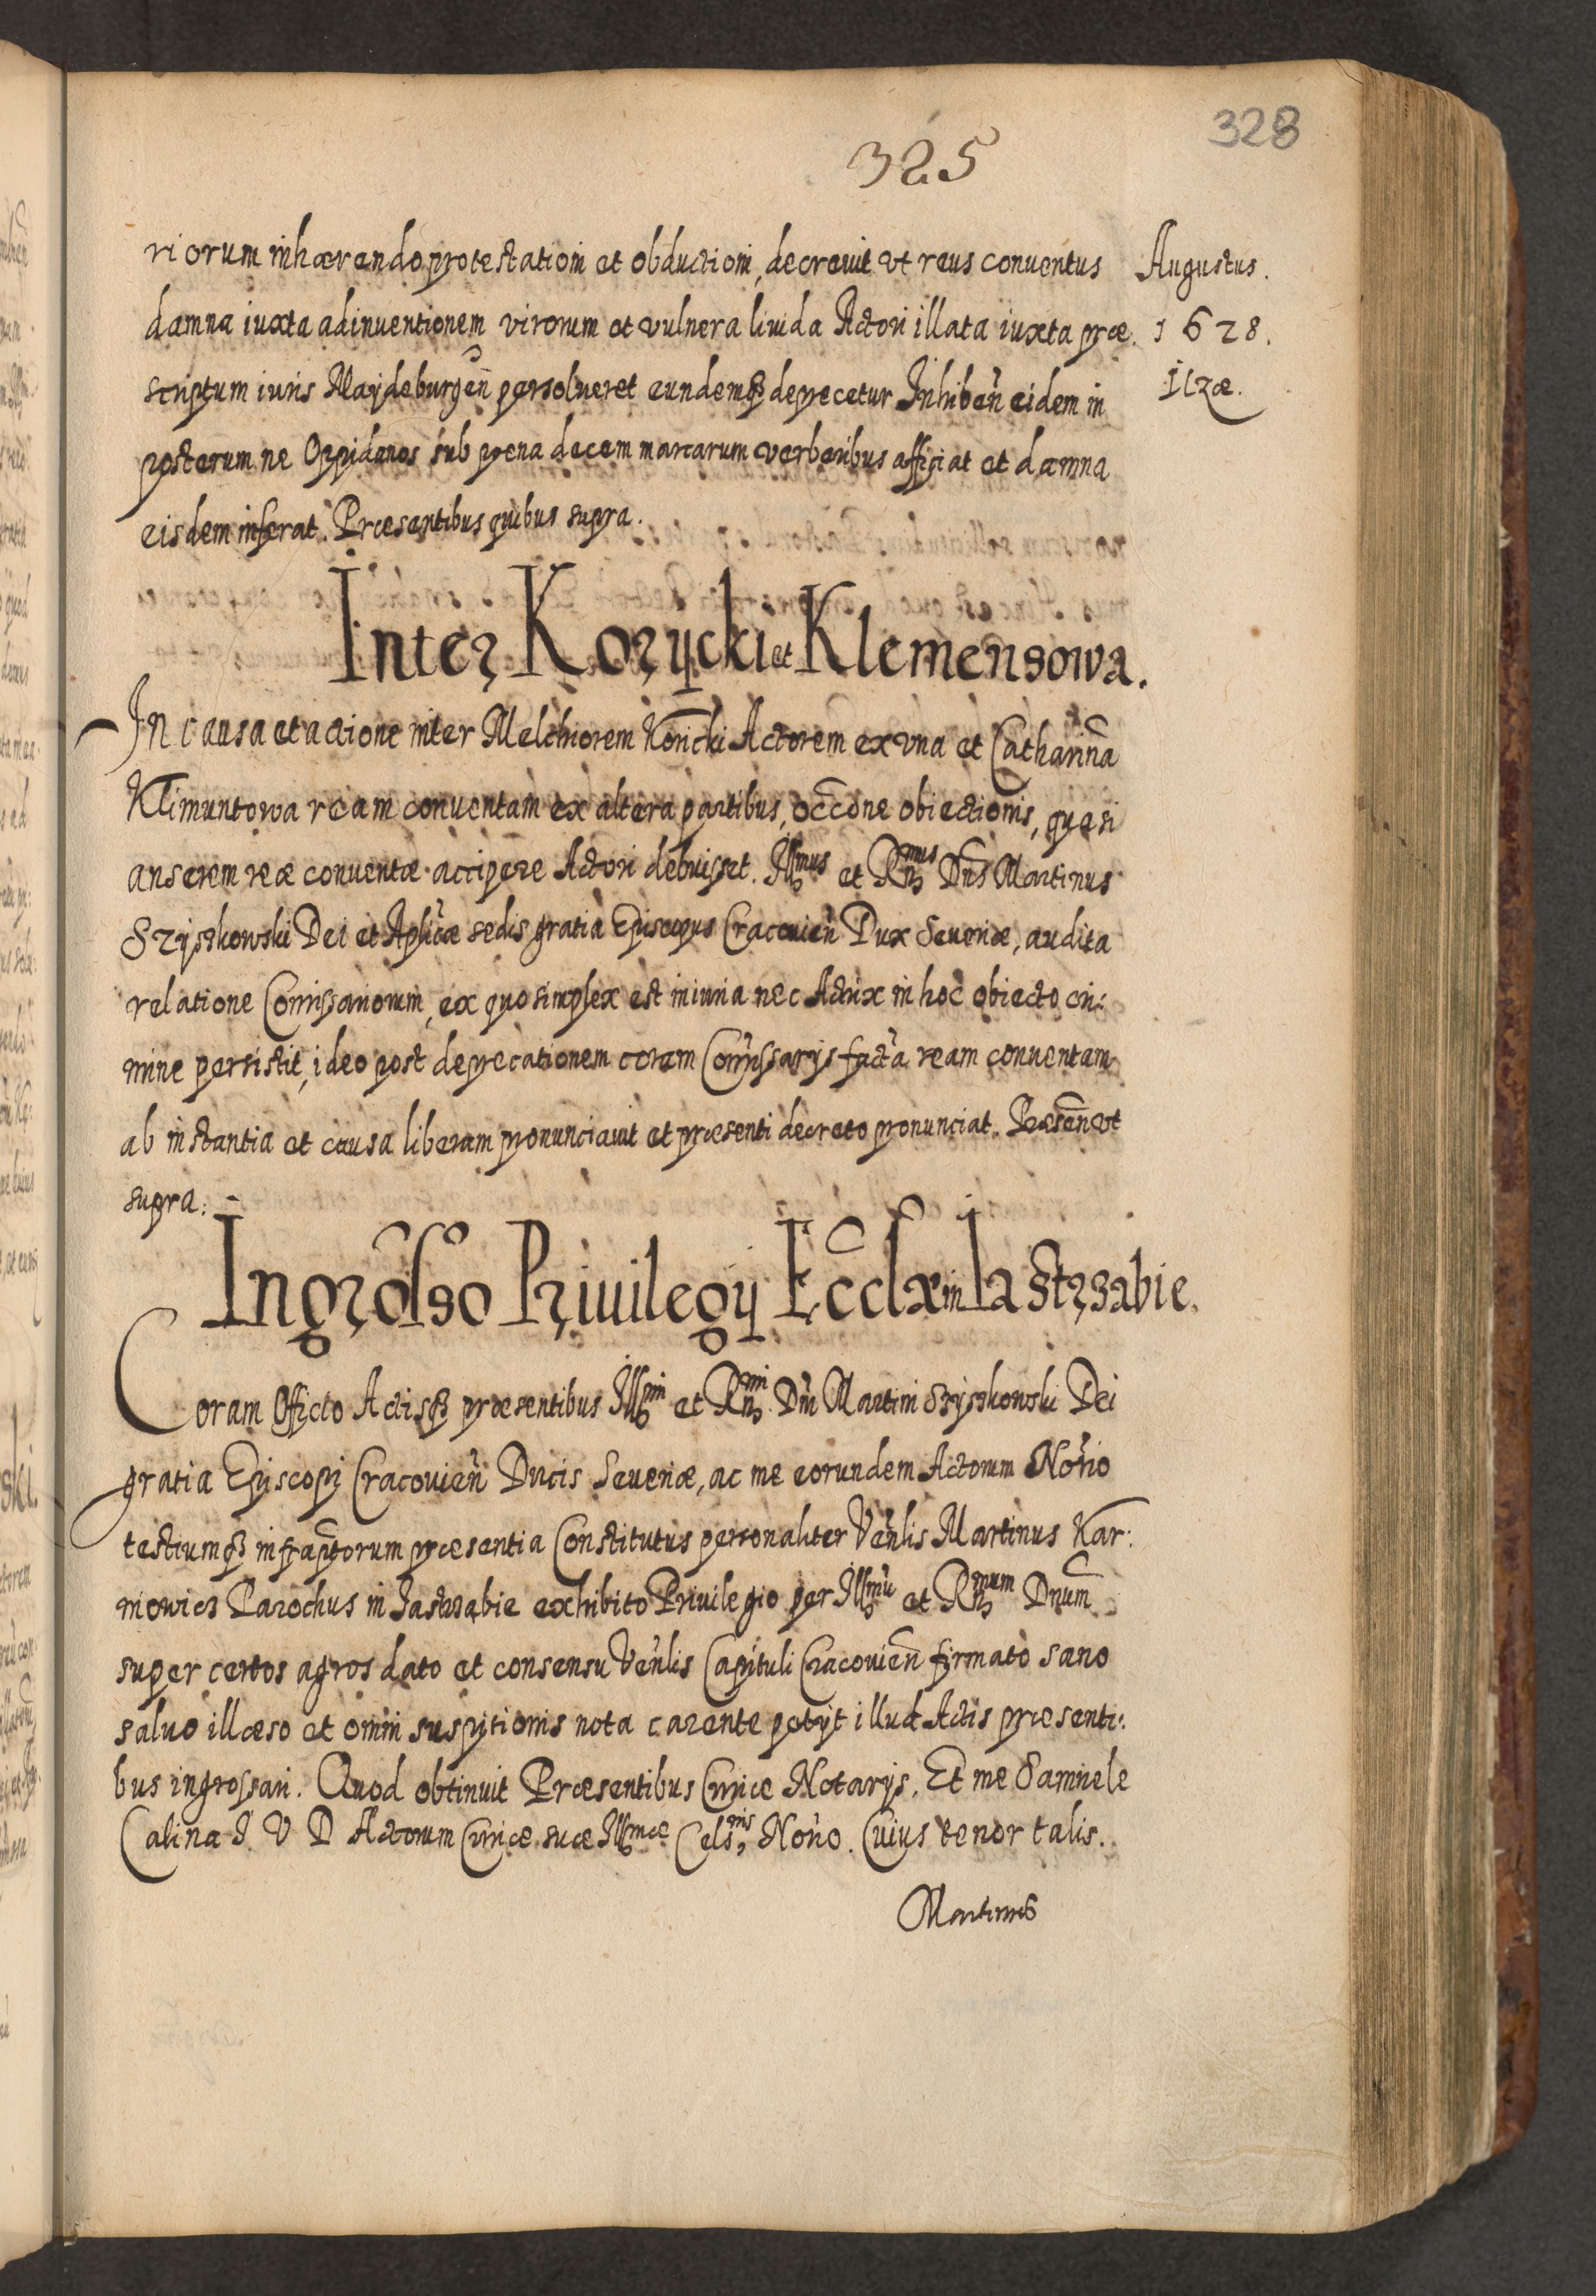 328
325
riorum inhærendo protestationi et obductioni, decrevit vt reus conuentus
Augustus.
damna iuxta adinuentionem virorum et vulnera liuida Actori illata iuxta præ.
1628.
scriptum iuris Maydeburgeñ persolueret eundemqꝫ deprecetur Inhibeñ eidem in
Ilzæ.
posterum ne Oppidanos sub pœna decem marcarum verberibus afficiat et damna
eisdem inferat. Præsentibus quibus supra.
Inter Korycki et Klemensowa.
In causa et actione inter Melchiorem Koricki Actorem ex vna et Catharinã
Klimuntowa ream conuentam ex altera partibus, occõne obiectionis, quasi
anserem reæ conuentæ accipere Actori debuisset. Illmus et Rndmus Dñs Martinus
Szyszkowski Dei et Aplicæ sedis gratia Episcopus Cracouieñ Dux Seueriæ, audita
relatione Comissariorum, ex quo simplex est iniuria nec Actrix in hoc obiecto cri:
mine persistit, ideo post deprecationem coram Comissarijs factã ream conuentam
ab instantia et causa liberam pronunciauit et præsenti decreto pronunciat. Præseñ vt
supra.
Ingrõsso Priuilegij Ecclæ in Iastrzabie.
Coram Officio Actisqꝫ præsentibus Illmi et Rndmi Dñi Martini Szyszkowski Dei
gratia Episcopi Cracouieñ Ducis Seueriæ, ac me eorundem Actorum Norio
testiumqꝫ infraptorum præsentia Constitutus personaliter Venlis Martinus Kar:
niowicz Parochus in Jastrzabie exhibito Priuilegio per Illmũ et Rndmum Dnum
super certos agros dato et consensu Venlis Capituli Cracouieñ firmato sano
saluo illæso et omni suspitionis nota carente petijt illud Actis præsenti:
bus ingrossari. Quod obtinuit Præsentibus Curiæ Notarijs. Et me Samuele
Calina I V D Actorum Curiæ suæ Illmæ Celsnis Norio. Cuius tenor talis.
Martinus